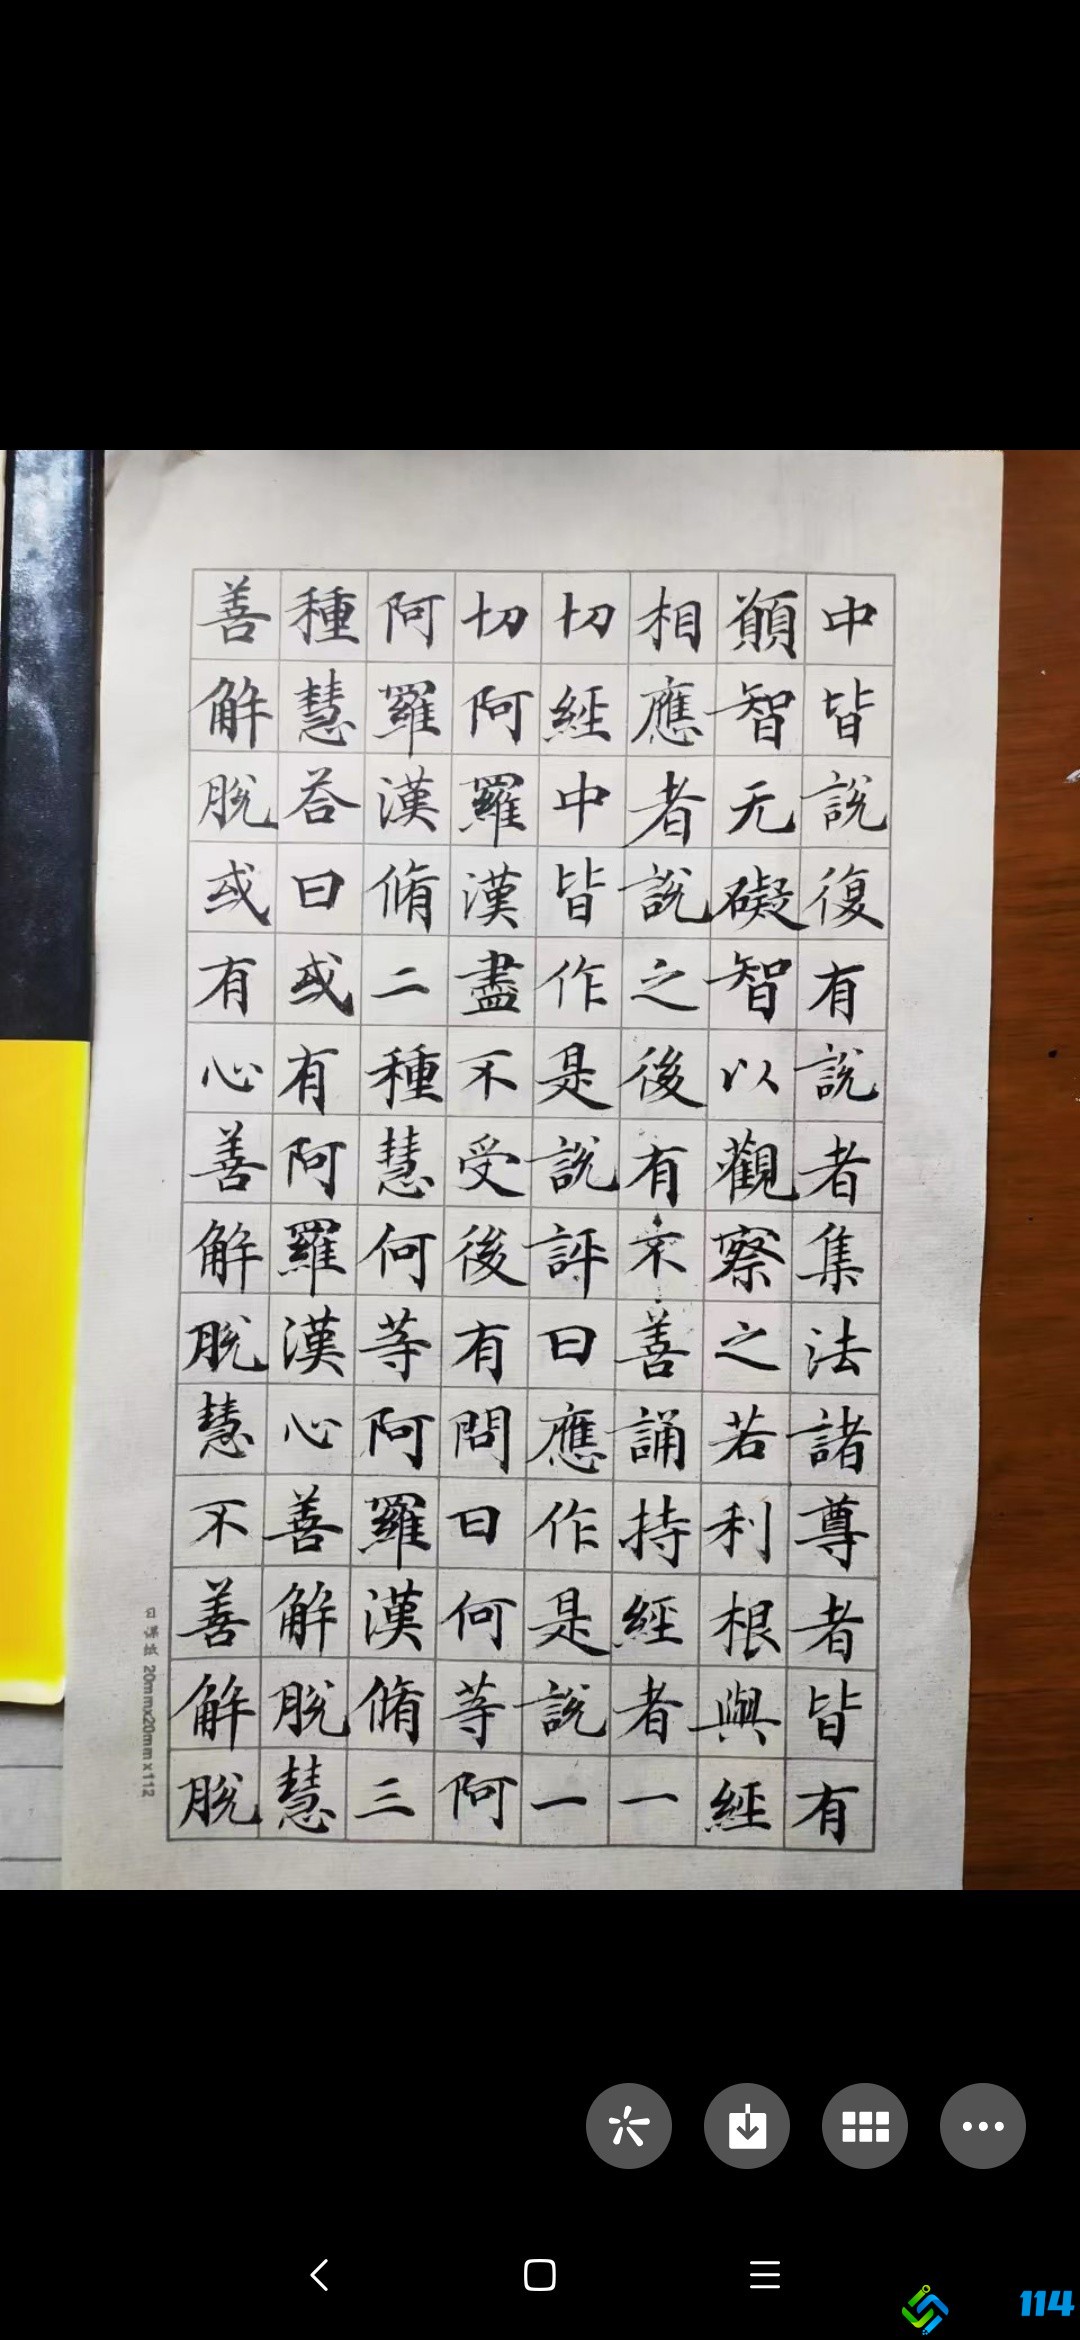 中皆說復有說者集法諸尊者皆有
願智无礙智以觀察之若利根與經
相應者說之後有不善誦持經者一
切經中皆作是說評曰應作是說一
切阿羅漢盡不受後有問曰何等阿
阿羅漢脩二種慧何等阿羅漢脩三
種慧荅曰或有阿羅漢心善解脫慧
善解脫或有心善解脫慧不善解脫
日课纸 20mmx20mmx112
114